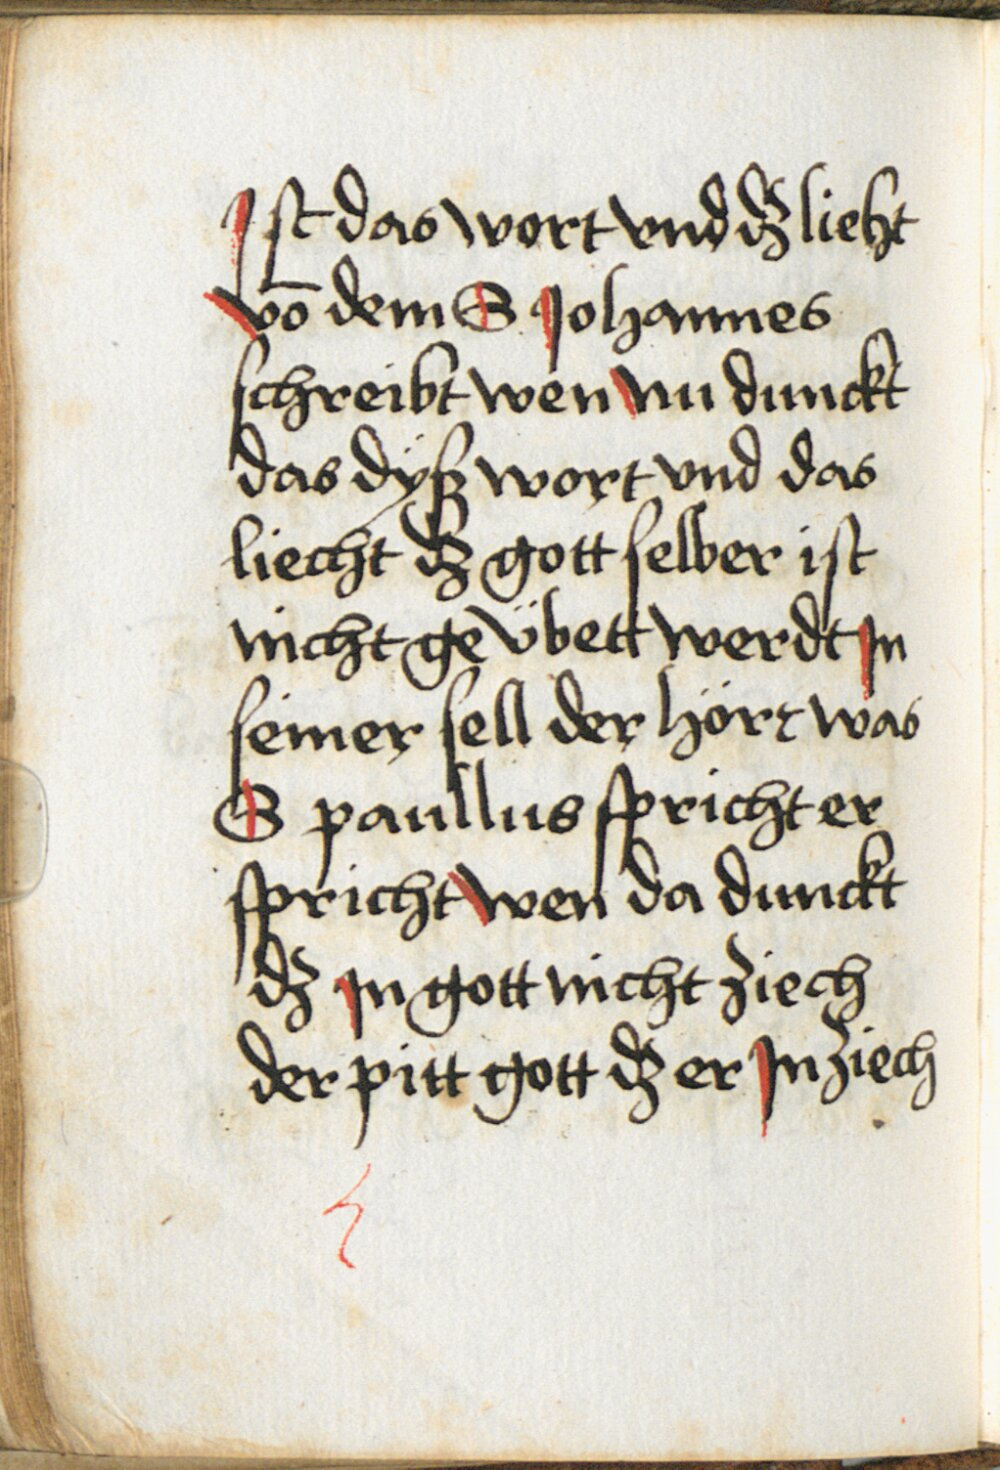 Ist das wort vnd dz lieht
vō dem S Johannes
schreibt wen nu dunckt
das dyß wort vnd das
liecht dz gott selber ist
nicht geübett werdt Jn
seiner sell der hört was
S paullus spricht er
spricht wen da dunckt
dz Jn gott nicht ziech
der pitt gott dz er Jn ziech